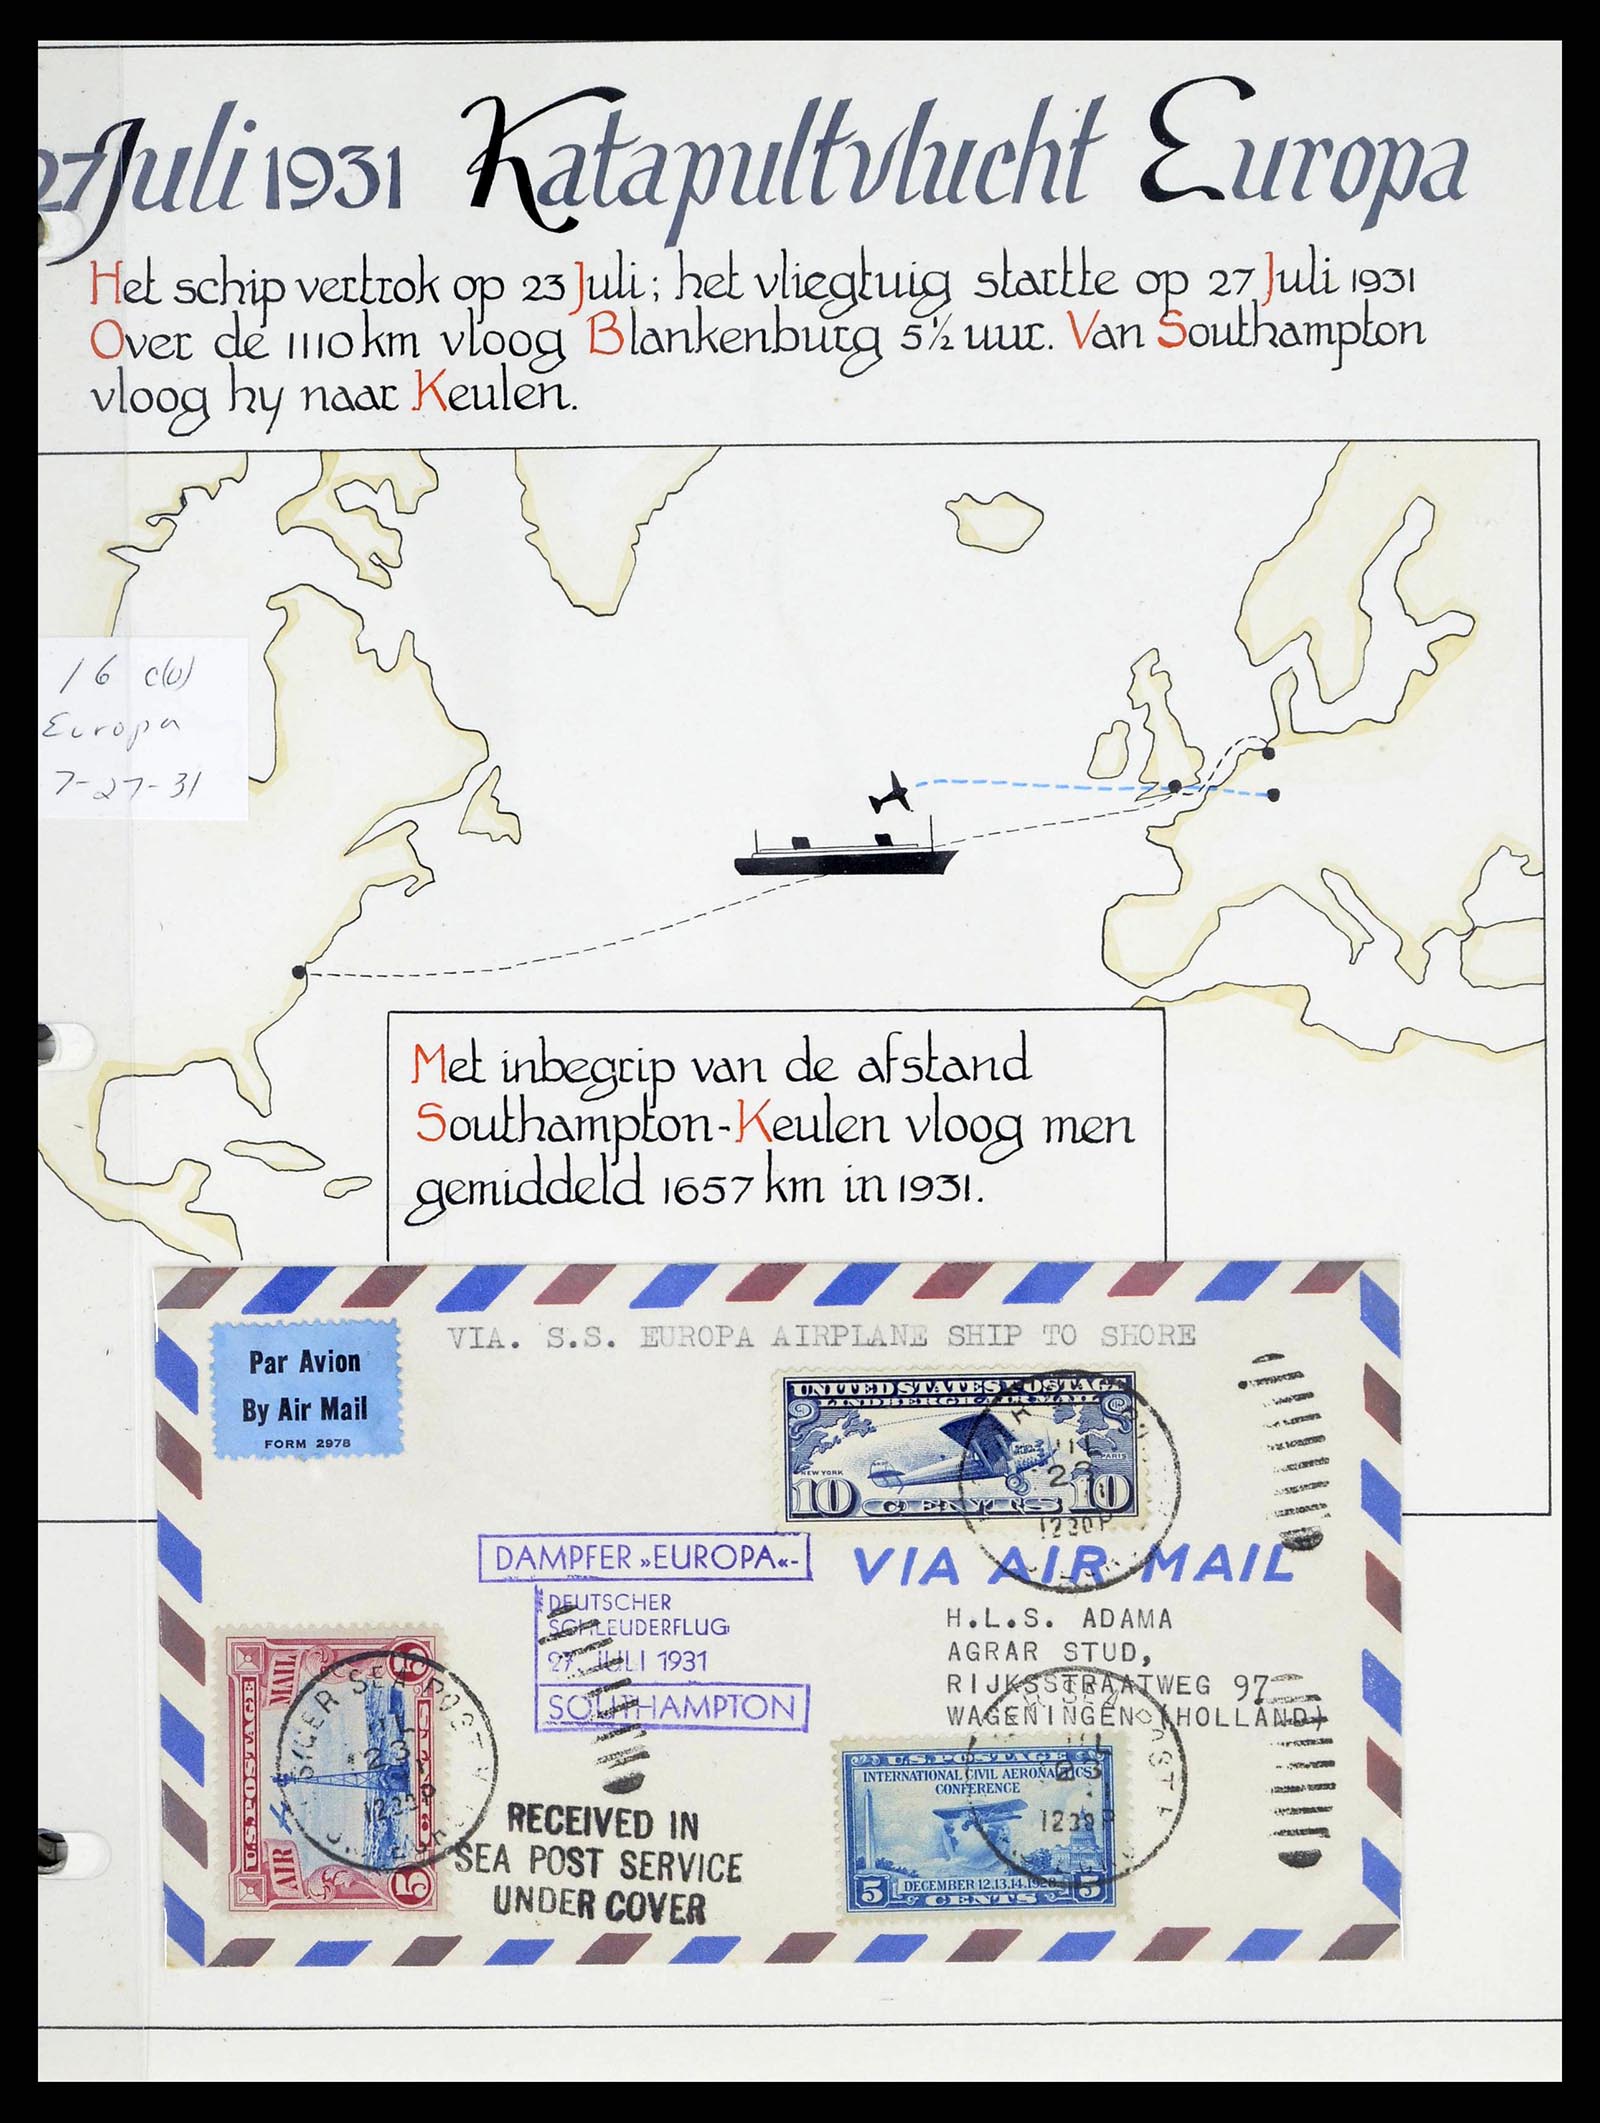 27 Juli 1931 Katapultvlucht Europa
Het schip vertrok op 23 Juli; het vliegtuig startte op 27 Juli 1931
Over de 1110 km vloog Blankenburg 5½ uur. Van Southampton
vloog hy naar Keulen.
16 c(U)
Europa
7-27-31
Met inbegrip van de afstand
Southampton-Keulen vloog men
gemiddeld 1657 km in 1931.
VIA. S.S. EUROPA AIRPLANE SHIP TO SHORE
Par Avion
By Air Mail
FORM 2978
UNITED STATES POSTAGE
LINDBERGH AIR MAIL
NEW YORK
PARIS
10 CENTS 10
JUL
23
1230P
DAMPFER »EUROPA«-
DEUTSCHER
SCHLEUDERFLUG
27. JULI 1931
SOUTHAMPTON
VIA AIR MAIL
H.L.S. ADAMA
AGRAR STUD,
RIJKSSTRAATWEG 97
WAGENINGEN (HOLLAND)
U.S. POSTAGE
AIR MAIL
5
5
SEA POST
JUL
23
1230P
RECEIVED IN
SEA POST SERVICE
UNDER COVER
U.S. POSTAGE
INTERNATIONAL CIVIL AERONAUTICS
CONFERENCE
DECEMBER 12.13.14.1928
5 CENTS 5
SEA POST
JUL
23
1230P